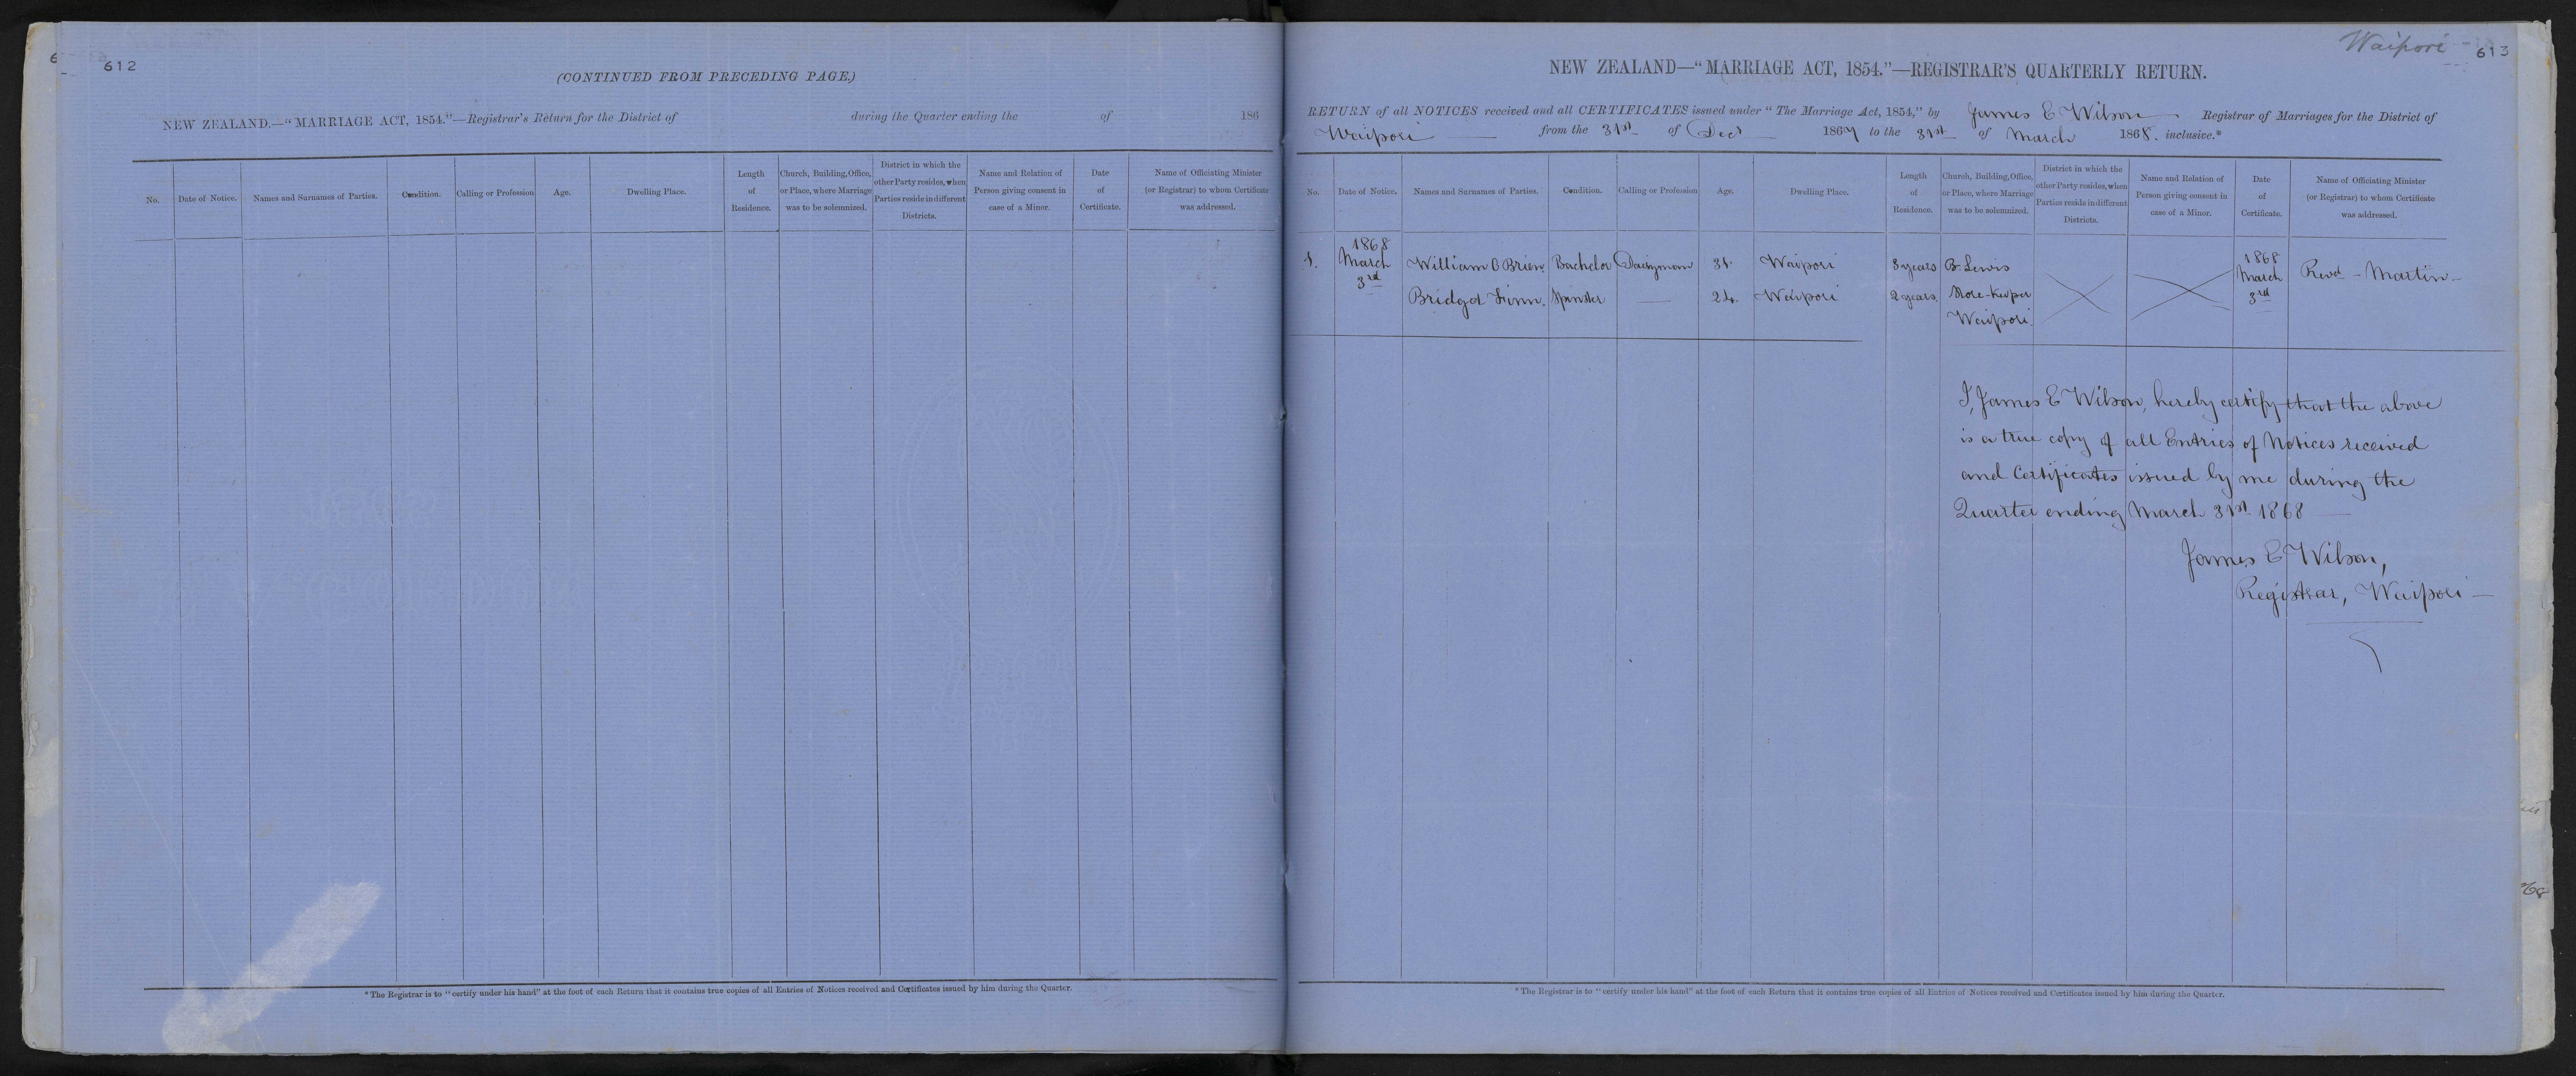 612
(CONTINUED FROM PRECEDING PAGE.)
NEW ZEALAND.—"MARRIAGE ACT, 1854."—Registrar's Return for the District of during the Quarter ending the of 186
No. Date of Notice. Names and Surnames of Parties. Condition. Calling or Profession Age. Dwelling Place. Length of Residence. Church, Building, Office, or Place, where Marriage was to be solemnized. District in which the other Party resides, when Parties reside in different Districts. Name and Relation of Person giving consent in case of a Minor. Date of Certificate. Name of Officiating Minister (or Registrar) to whom Certificate was addressed.
*The Registrar is to "certify under his hand" at the foot of each Return that it contains true copies of all Entries of Notices received and Certificates issued by him during the Quarter.
Waipori 613
NEW ZEALAND—"MARRIAGE ACT, 1854."—REGISTRAR'S QUARTERLY RETURN.
RETURN of all NOTICES received and all CERTIFICATES issued under "The Marriage Act, 1854," by James E Wilson Registrar of Marriages for the District of
Waipori from the 31st of Decr 1867 to the 31st of March 1868. inclusive.*
No. Date of Notice. Names and Surnames of Parties. Condition. Calling or Profession Age. Dwelling Place. Length of Residence. Church, Building, Office, or Place, where Marriage was to be solemnized. District in which the other Party resides, when Parties reside in different Districts. Name and Relation of Person giving consent in case of a Minor. Date of Certificate. Name of Officiating Minister (or Registrar) to whom Certificate was addressed.
1868 1868
1. March William O Brien Bachelor Dairyman 31 Waipori 3 years B. Lewis March Revd - Martin -
3rd Bridget Finn. Spinster — 24. Waipori 2 years Store-keeper 3rd
Waipori.
I, James E Wilson, hereby certify that the above
is a true copy of all Entries of Notices received
and Certificates issued by me during the
Quarter ending March 31st 1868
James E Wilson,
Registrar, Waipori —
*The Registrar is to "certify under his hand" at the foot of each Return that it contains true copies of all Entries of Notices received and Certificates issued by him during the Quarter.